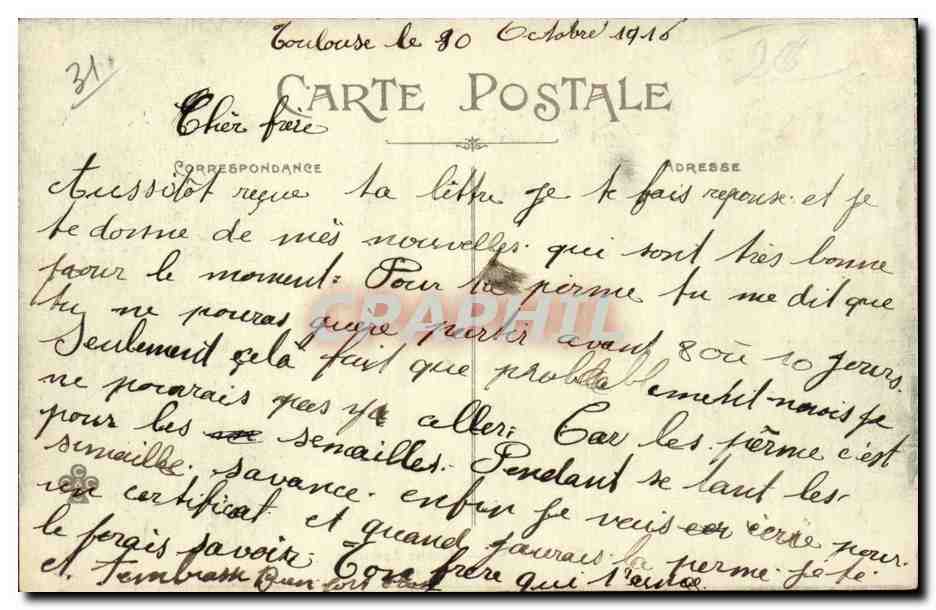 Toulouse le 30 Octobre 1916
31.
CARTE POSTALE
Cher frère
CORRESPONDANCE
ADRESSE
Aussitôt reçue ta lettre je te fais reponse. et je
te donne de mès nouvelles. qui sont très bonne
pour le moment: Pour ta perme tu me dit que
tu ne pouras guère partir avant 8 où 10 jours.
CRAPHIL
Seulement çela fait que probablement mois je
ne pourais pas y aller: Car les perme c'est
pour les semailles. Pendant se tant les
semaille savance. enfin je vais ecrire pour
un certificat et quand jaurais la perme je te
le ferais savoir: Ton frère qui t'aime
et tembrasse Bien fort